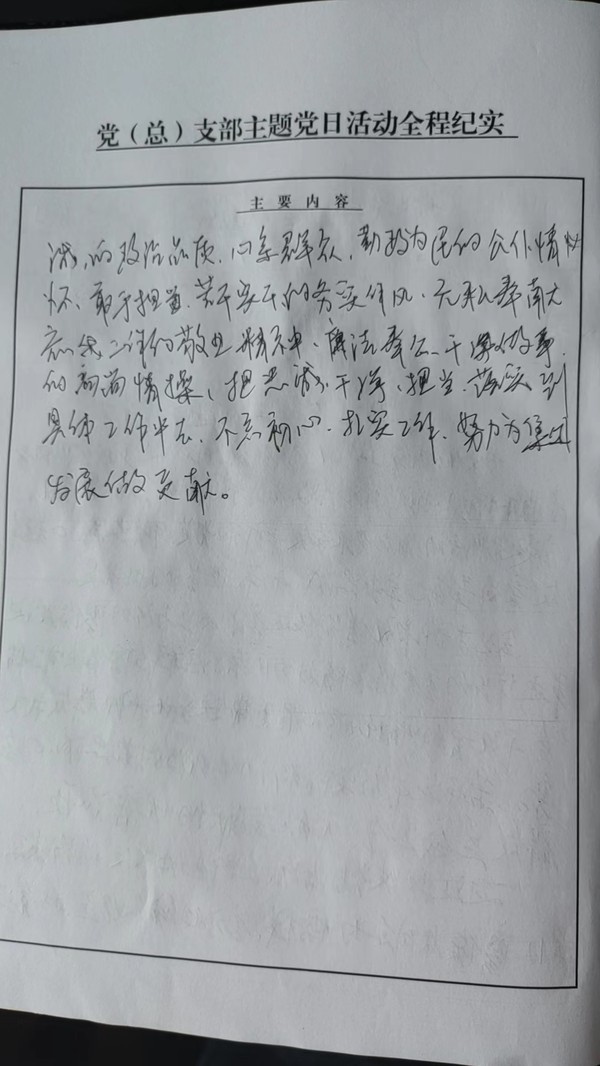 党（总）支部主题党日活动全程纪实
主要内容
的政治品质、心系群众、勤政为民的公仆情
怀、敢于担当、苦干实干的务实作风、无私奉献
工作的敬业精神、廉法奉公、干净做事
的高尚情操、把忠诚、干净、担当、落实到
具体工作中去、不忘初心、扎实工作、努力为集团
发展做贡献。